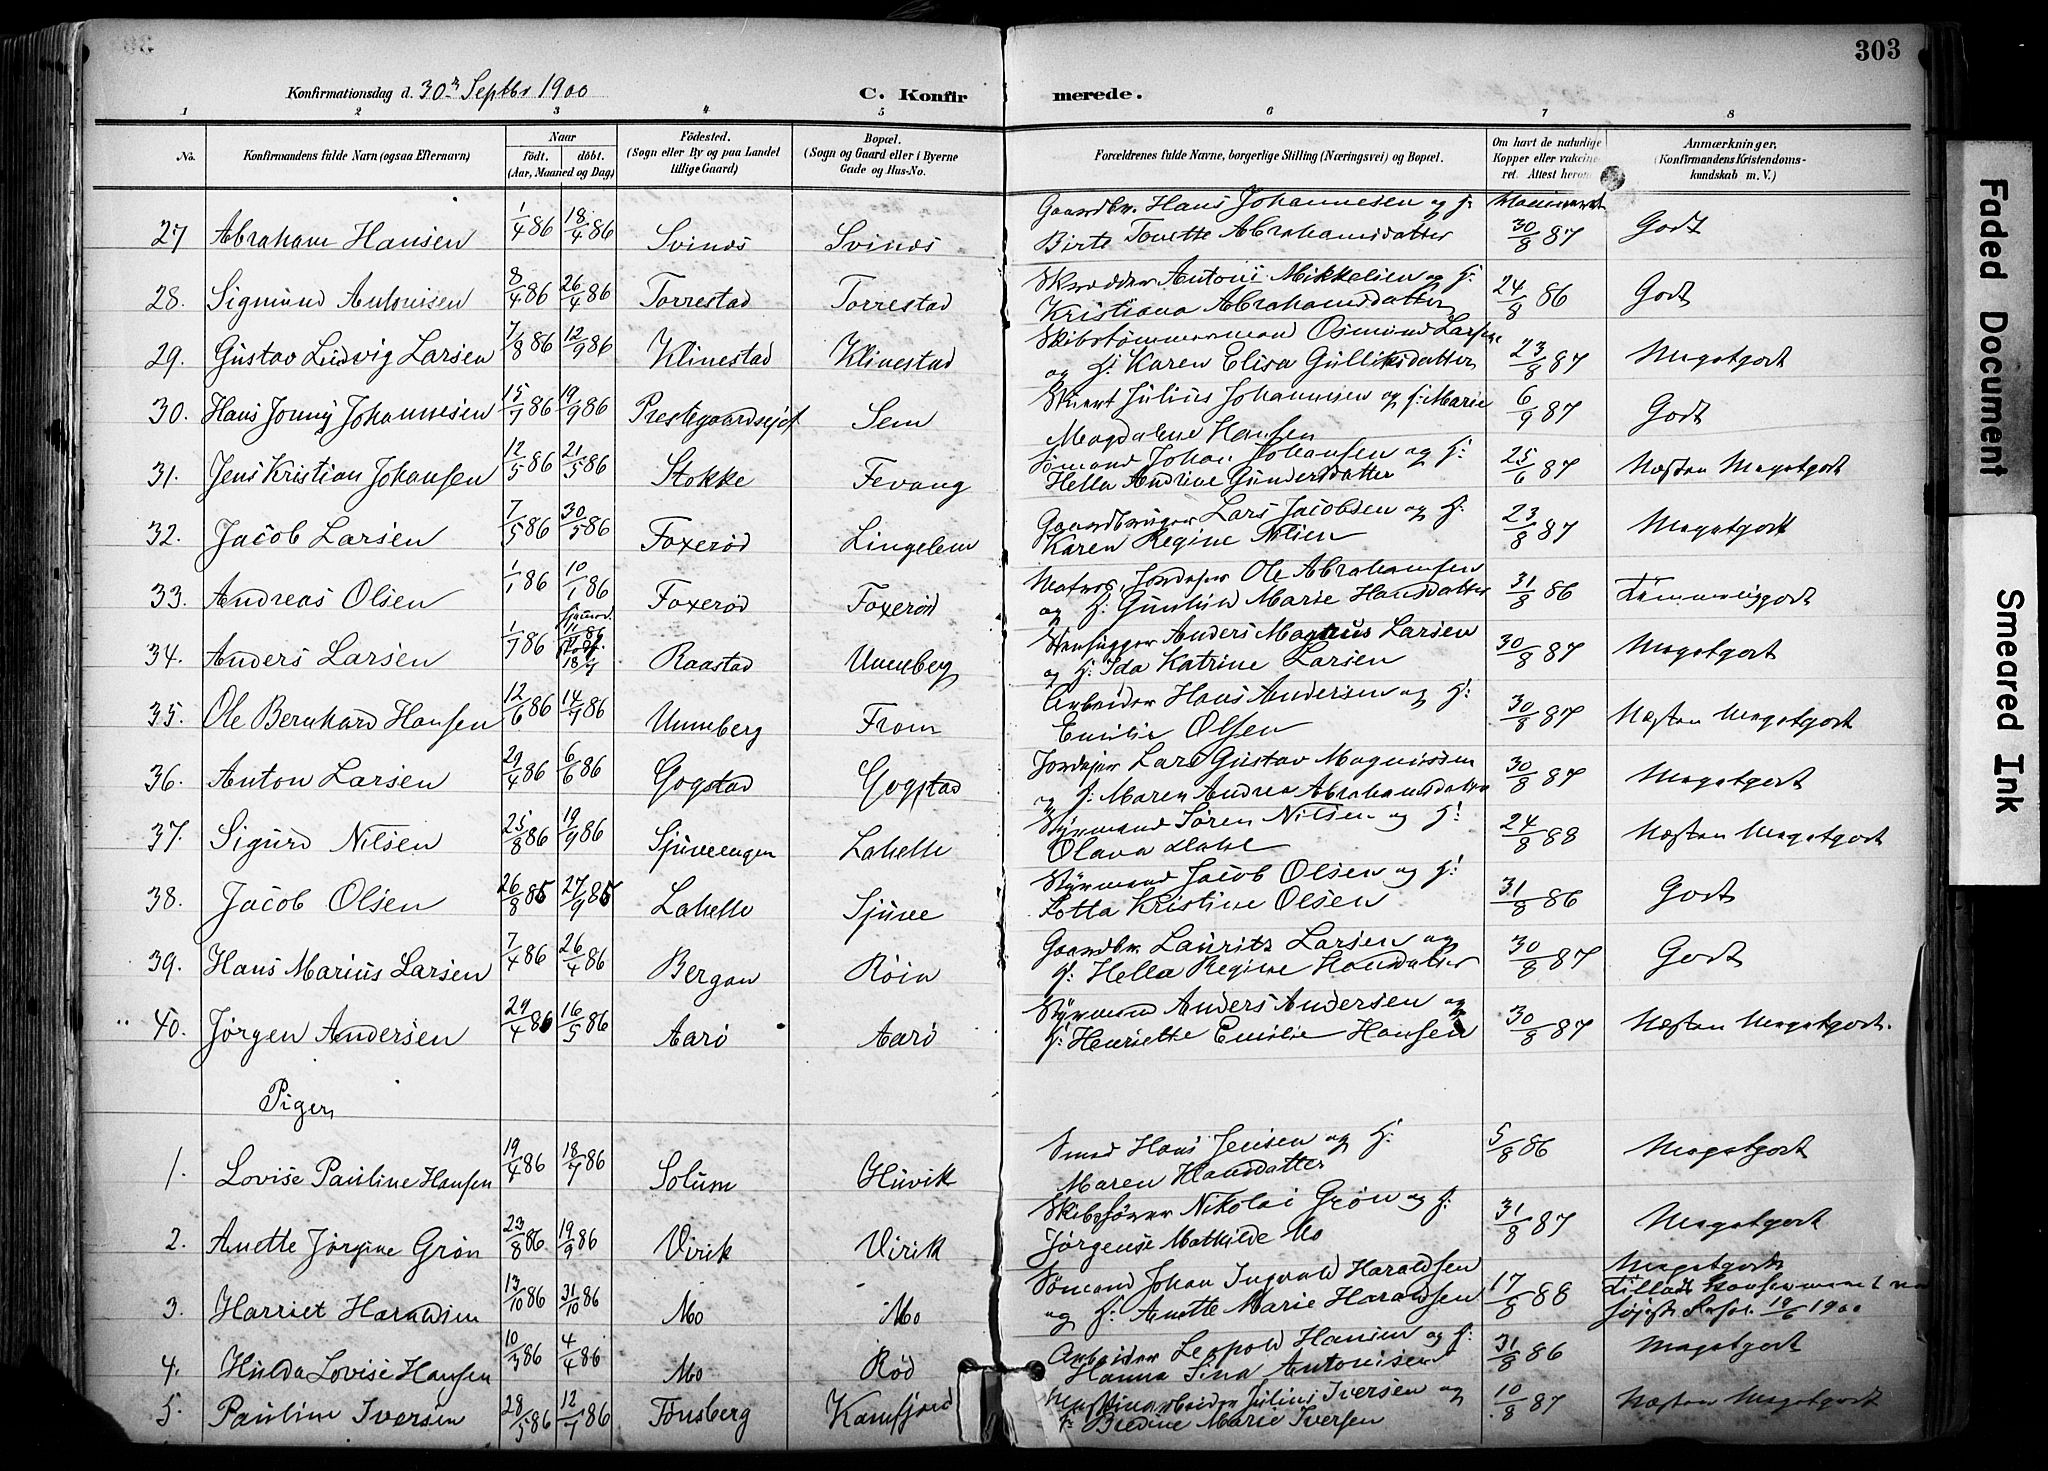 303
Konfirmationsdag d. 30te Septbr 1900
C. Konfirmerede.
1 2 3 4 5 6 7 8
No. Konfirmandens fulde Navn (ogsaa Efternavn) Naar födt. döbt. (Aar, Maaned og Dag) Födested. (Sogn eller By og paa Landet tillige Gaard) Bopæl. (Sogn og Gaard eller i Byerne Gade og Hus-No. Forældrenes fulde Navne, borgerlige Stilling (Næringsvei) og Bopæl. Om havt de naturlige Kopper eller vaccineret. Attest herom Anmærkninger, (Konfirmandens Kristendomskundskab m. V.)
27 Abraham Hansen 1/4 86 18/4 86 Svines Svines Gaardbr. Hans Johannesen og H: Vaccineret
Birte Tonette Abrahamsdatter 30/8 87 Godt
28. Sigmund Antonisen 8/4 86 26/4 86 Torrestad Torrestad Skrædder Antoni Mikkelsen og H: 24/8 86 Godt
Kristiana Abrahamsdatter
29. Gustav Ludvig Larsen 7/8 86 12/9 86 Klinestad Klinestad Skibstømmermand Osmund Larsen
og H: Karen Elisa Gulliksdatter 23/8 87 Megetgodt
30. Hans Jonny Johannesen 15/7 86 19/9 86 Prestegaardsejet Sem Julius Johannesen og H: Marie 6/9 87 Godt
Magdalene Hansen
31. Jens Kristian Johansen 12/5 86 21/5 86 Stokke Fevang Sømand Johan Johansen og H: 25/6 87 Næsten Megetgodt
Hella Andrine Gundersdatter
32. Jacob Larsen 7/5 86 30/5 86 Foxerød Lingelem Gaardbruger Lars Jacobsen og H: 23/8 87 Megetgodt
Karen Regine Nilsen
33. Andreas Olsen 1/1 86 10/1 86 Foxerød Foxerød Matros, Jordejer Ole Abrahamsen 31/8 86 Temmeliggodt
og H: Gunhild Marie Hansdatter
34. Anders Larsen 1/7 86 Raastad Unneberg Stenhugger Anders Magnus Larsen 30/8 87 Megetgodt
og H: Ida Katrine Larsen
35. Ole Bernhard Hansen 12/6 86 14/7 86 Unneberg From Arbeider Hans Andersen og H: 30/8 87 Næsten Megetgodt
Emilie Olsen
36. Anton Larsen 29/4 86 6/6 86 Gogstad Gogstad Jordejer Lars Gustav Magnussen 30/8 87 Megetgodt
og H: Maren Andrea Abrahamsdatter
37. Sigurd Nilsen 25/8 86 19/9 86 Sjuveengen Lahelle Styrmand Søren Nilsen og H: 24/8 88 Næsten Megetgodt
Olava
38. Jacob Olsen 26/8 85 27/9 85 Lahelle Sjuve Styrmand Jacob Olsen og H: 31/8 86 Godt
Lotta Kristine Olsen
39. Hans Marius Larsen 7/4 86 26/4 86 Bergan Røia Gaardbr. Laurits Larsen og 30/8 87 Godt
H: Hella Regine Hansdatter
40. Jørgen Andersen 29/4 86 16/5 86 Aarø Aarø Styrmand Anders Andersen og 30/8 87 Næsten Megetgodt.
H: Henriette Emilie Hansen
Piger
1. Lovise Pauline Hansen 19/4 86 18/7 86 Solum Huvik Smed Hans Jensen og H: 5/8 86 Megetgodt
Maren Hansdatter
2. Anette Jørgine Grøn 23/8 86 19/9 86 Virik Virik Skibsfører Nikolai Grøn og H: 31/8 87 Megetgodt
Jørgense Mathilde Mo
3. Harriet Haraldsen 13/10 86 31/10 86 Mo Mo Sømand Johan Ingvald Haraldsen 17/8 88 Megetgodt
og H: Anette Marie Haraldsen 19/6 1900
4. Hulda Lovise Hansen 10/3 86 4/4 86 Mo Rød Arbeider Leopold Hansen og H: 31/8 86 Megetgodt
Hanna Sina Antonisen
5. Pauline Iversen 28/5 86 12/7 86 Tønsberg Kamfjord Julius Iversen og 10/8 87 Næsten Megetgodt
H: Bredine Marie Iversen
Faded Document
Smeared Ink